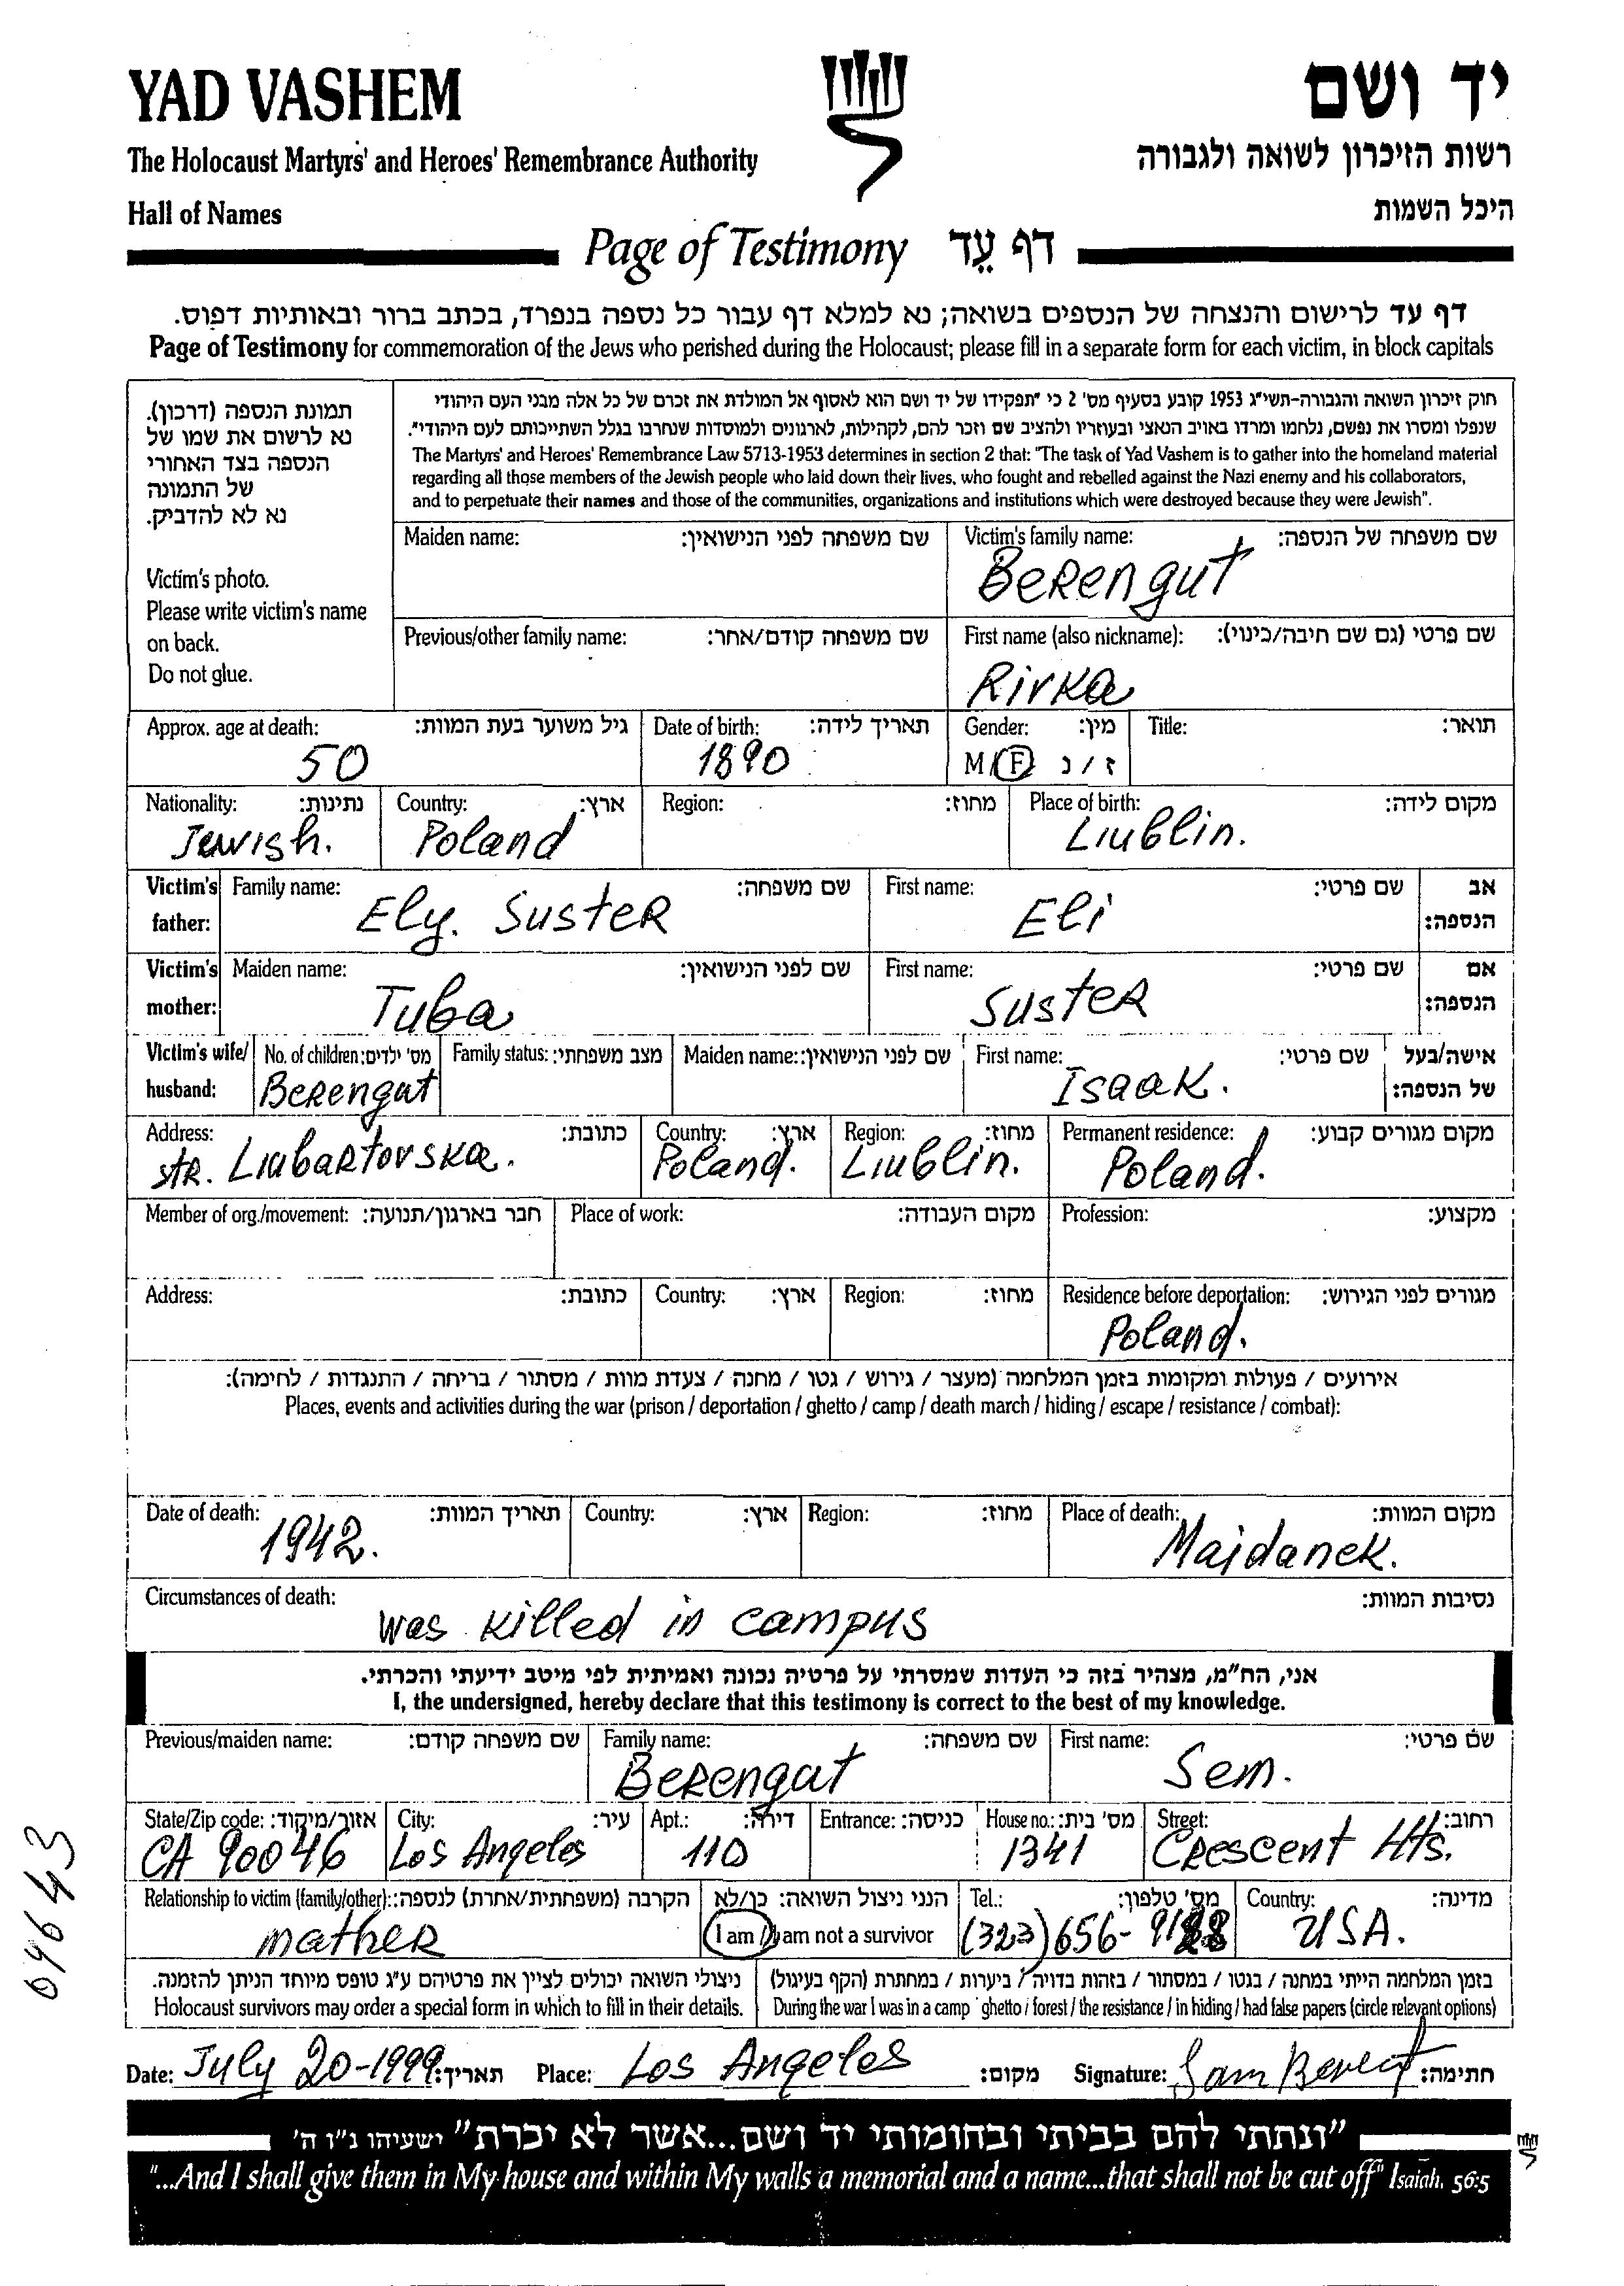 YAD VASHEM
יד ושם
The Holocaust Martyrs' and Heroes' Remembrance Authority
רשות הזיכרון לשואה ולגבורה
Hall of Names
היכל השמות
Page of Testimony דף עֵד
דף עד לרישום והנצחה של הנספים בשואה; נא למלא דף עבור כל נספה בנפרד, בכתב ברור ובאותיות דפוס.
Page of Testimony for commemoration of the Jews who perished during the Holocaust; please fill in a separate form for each victim, in block capitals
תמונת הנספה (דרכון).
נא לרשום את שמו של
הנספה בצד האחורי
של התמונה
נא לא להדביק.
Victim's photo.
Please write victim's name
on back.
Do not glue.
חוק זיכרון השואה והגבורה-תשי"ג 1953 קובע בסעיף מס' 2 כי "תפקידו של יד ושם הוא לאסוף אל המולדת את זכרם של כל אלה מבני העם היהודי
שנפלו ומסרו את נפשם, נלחמו ומרדו באויב הנאצי ובעוזריו ולהציב שם וזכר להם, לקהילות, לארגונים ולמוסדות שנחרבו בגלל השתייכותם לעם היהודי".
The Martyrs' and Heroes' Remembrance Law 5713-1953 determines in section 2 that: "The task of Yad Vashem is to gather into the homeland material
regarding all those members of the Jewish people who laid down their lives, who fought and rebelled against the Nazi enemy and his collaborators,
and to perpetuate their names and those of the communities, organizations and institutions which were destroyed because they were Jewish".
Maiden name: שם משפחה לפני הנישואין: Victim's family name: שם משפחה של הנספה:
Berengut
Previous/other family name: שם משפחה קודם/אחר: First name (also nickname): שם פרטי (גם שם חיבה/כינוי):
Rivka
Approx. age at death: גיל משוער בעת המוות: Date of birth: תאריך לידה: Gender: מין: Title: תואר:
50 1890 M/F ז/נ
Nationality: נתינות: Country: ארץ: Region: מחוז: Place of birth: מקום לידה:
Jewish. Poland Liublin.
Victim's father: Family name: שם משפחה: First name: שם פרטי: אב הנספה:
Ely. Suster Eli
Victim's mother: Maiden name: שם לפני הנישואין: First name: שם פרטי: אם הנספה:
Tuba Suster
Victim's wife/ husband: No. of children: מס' ילדים: Family status: מצב משפחתי: Maiden name: שם לפני הנישואין: First name: שם פרטי: אישה/בעל של הנספה:
Berengut Isaak.
Address: כתובת: Country: ארץ: Region: מחוז: Permanent residence: מקום מגורים קבוע:
str. Liubartovska. Poland. Liublin. Poland.
Member of org./movement: חבר בארגון/תנועה: Place of work: מקום העבודה: Profession: מקצוע:
Address: כתובת: Country: ארץ: Region: מחוז: Residence before deportation: מגורים לפני הגירוש:
Poland.
אירועים / פעולות ומקומות בזמן המלחמה (מעצר / גירוש / גטו / מחנה / צעדת מוות / מסתור / בריחה / התנגדות / לחימה):
Places, events and activities during the war (prison / deportation / ghetto / camp / death march / hiding / escape / resistance / combat):
Date of death: תאריך המוות: Country: ארץ: Region: מחוז: Place of death: מקום המוות:
1942. Majdanek.
Circumstances of death: נסיבות המוות:
was killed in campus
אני, הח"מ, מצהיר בזה כי העדות שמסרתי על פרטיה נכונה ואמיתית לפי מיטב ידיעתי והכרתי.
I, the undersigned, hereby declare that this testimony is correct to the best of my knowledge.
Previous/maiden name: שם משפחה קודם: Family name: שם משפחה: First name: שם פרטי:
Berengut Sem.
State/Zip code: אזור/מיקוד: City: עיר: Apt.: דירה: Entrance: כניסה: House no.: מס' בית: Street: רחוב:
CA 90046 Los Angeles 110 1341 Crescent Hts.
Relationship to victim (family/other): הקרבה (משפחתית/אחרת) לנספה: הנני ניצול השואה: כן/לא Tel.: מס' טלפון: Country: מדינה:
mather I am / I am not a survivor (323) 656- USA.
ניצולי השואה יכולים לציין את פרטיהם ע"ג טופס מיוחד הניתן להזמנה. בזמן המלחמה הייתי במחנה / בגטו / במסתור / בזהות בדויה / ביערות / במחתרת (הקף בעיגול)
Holocaust survivors may order a special form in which to fill in their details. During the war I was in a camp ghetto / forest / the resistance / in hiding / had false papers (circle relevant options)
Date: July 20-1999 תאריך: Place: Los Angeles מקום: Signature: Sam חתימה:
"ונתתי להם בביתי ובחומותי יד ושם...אשר לא יכרת" ישעיהו נ"ו ה'
"...And I shall give them in My house and within My walls a memorial and a name...that shall not be cut off" Isaiah, 56:5
09643